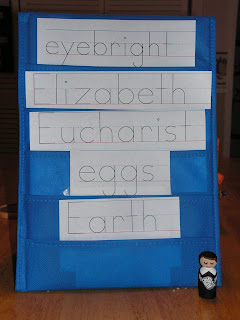 eyebright
Elizabeth
Eucharist
eggs
Earth